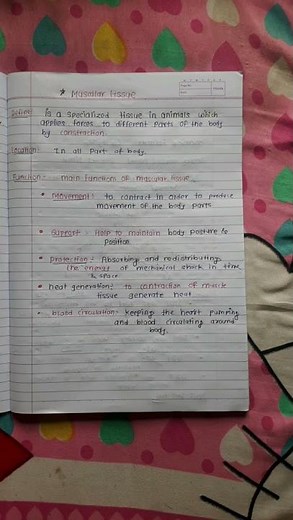 * Muscular tissue
Defini: is a specialized tissue in animals which
applies forces to different parts of the body
by constraction.
Location: In all part of body.
Function: main function of muscular tissue
• Movement: to contract in order to produce
movement of the body parts
• Support: Help to maintain body posture &
Position
• Protection:- Absorbing and redistributing
the energy of mechinical shock in time
& space
• heat generation: to contraction of muscle
tissue generate heat
• blood circulation: keeping the heart pumping
and blood circulating around
body.